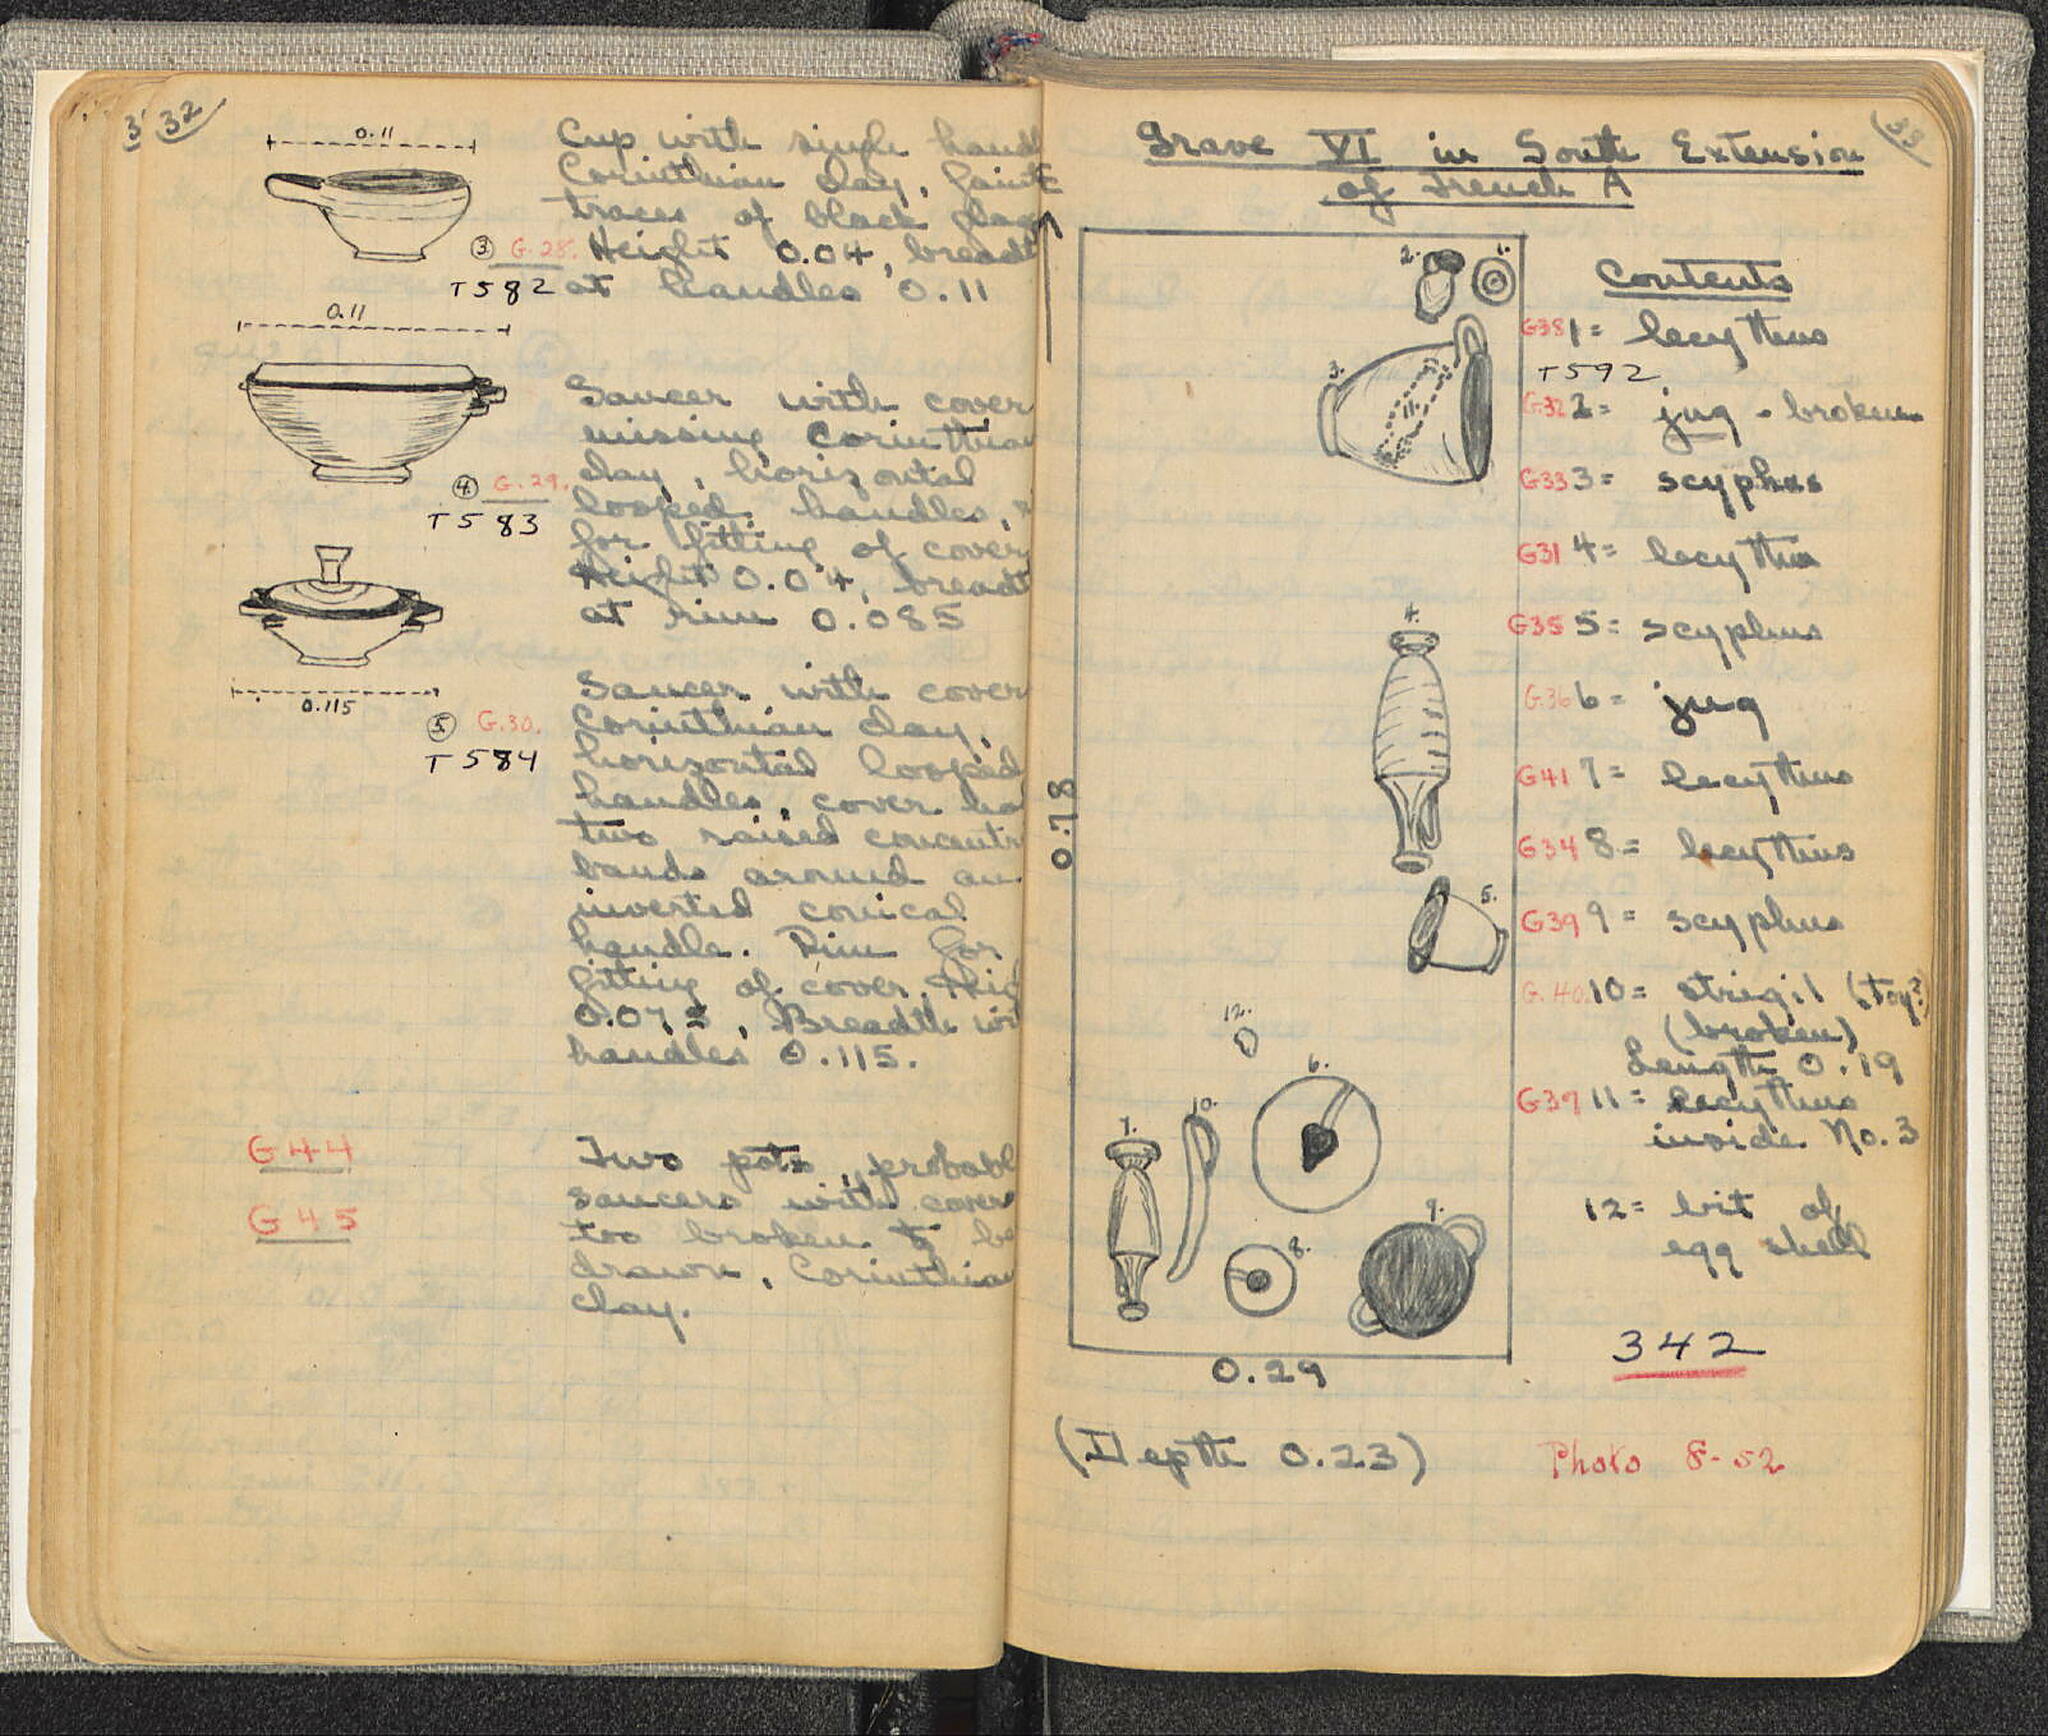 32
0.11
Cup with single handl
Corinthian clay, faint
traces of black glaz
③ G.28. Height 0.04, breadt
T582 at handles 0.11
0.11
Saucer with cover
missing Corinthian
clay, horizontal
④ G.29. looped handles,
T583
for fitting of cover
Height 0.04, breadt
at rim 0.085
Saucer with cover
0.115
⑤ G.30. Corinthian clay,
T584 horizontal looped
handles, cover ha
two raised concentr
bands around an
inverted conical
handle. Rim for
fitting of cover. Heig
Breadth wi
handles 0.115.
G44
Two pots, probabl
saucers with cover
G45
too broken to be
drawn, Corinthian
clay.
33
Grave VI in South Extension
of Trench A
Contents
G38 1 = lecythus
T592
G32 2 = jug - broken
G33 3 = scyphus
G31 4 = lecythus
G35 5 = scyphus
G.36 6 = jug
G41 7 = lecythus
G34 8 = lecythus
G39 9 = scyphus
G.40. 10 = strigil (toy?)
(broken)
Length 0.19
G39 11 = lecythus
inside No. 3
12 = bit of
egg shell
342
2. 1.
3.
11.
4.
5.
12.
6.
10.
7.
9.
8.
0.78
0.29
(Depth 0.23)
Photo 8-52